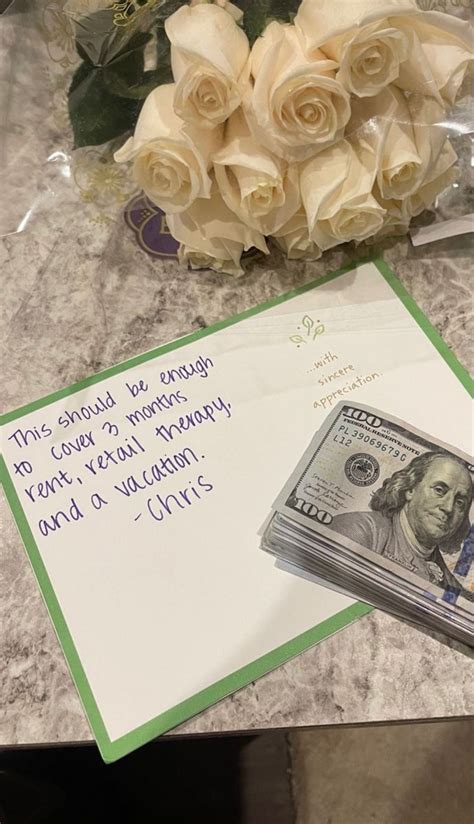 This should be enough
to cover 3 months
rent, retail therapy,
and a vacation.
- Chris
...with
sincere
appreciation.
100
FEDERAL RESERVE NOTE
PL 39069679
L12
100